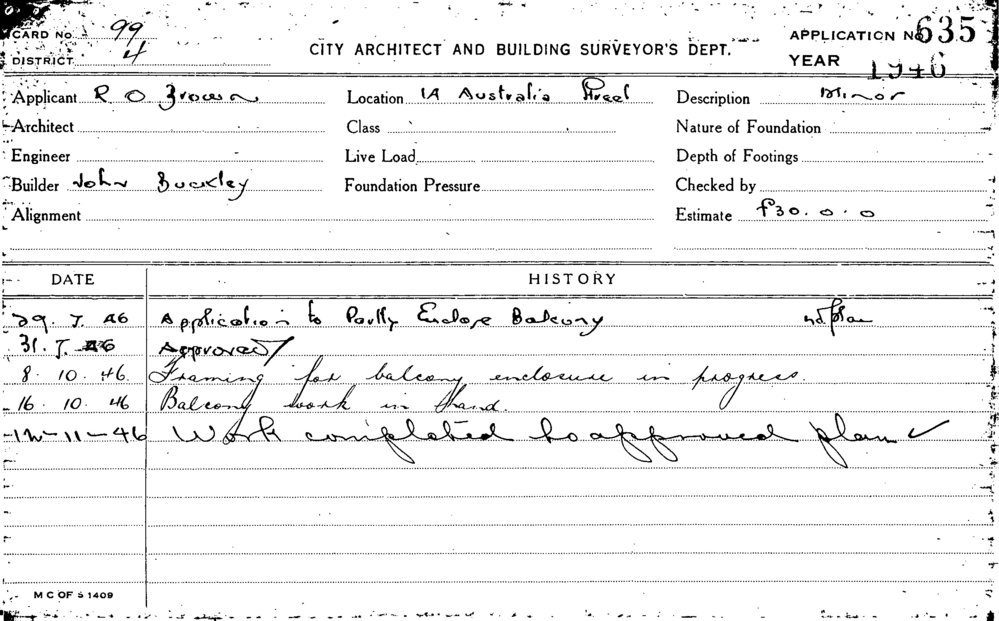 CARD No. 99
DISTRICT 4
CITY ARCHITECT AND BUILDING SURVEYOR'S DEPT.
APPLICATION No 635
YEAR 1946
Applicant R O Brown Location 1A Australia Street Description Minor
Architect Class Nature of Foundation
Engineer Live Load Depth of Footings
Builder John Buckley Foundation Pressure Checked by
Alignment Estimate £30.0.0
DATE HISTORY
29. 7. 46 Application to Partly Enclose Balcony plan
31. 7. 46 Approved
8. 10. 46. Framing for balcony enclosure in progress.
16. 10. 46 Balcony work in hand.
-11-46 Work completed to approved plan ✓
M C OF S 1409